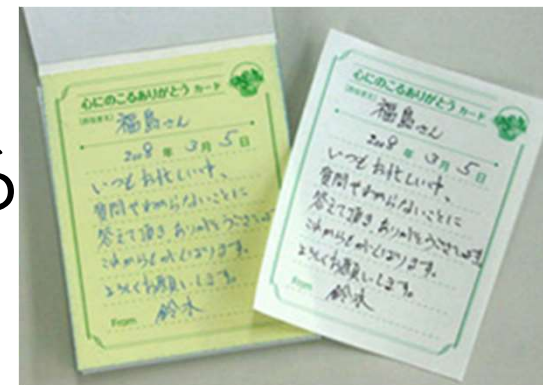 る
心にのこるありがとうカード
福島さん
2008年3月5日
いつもお忙しい中、
質問やわからないことに
答えて頂き、ありがとうございます。
これからもがんばります。
よろしくお願いします。
From 鈴木
心にのこるありがとうカード
福島さん
2008年3月5日
いつもお忙しい中、
質問やわからないことに
答えて頂き、ありがとうございます。
これからもがんばります。
よろしくお願いします。
From 鈴木